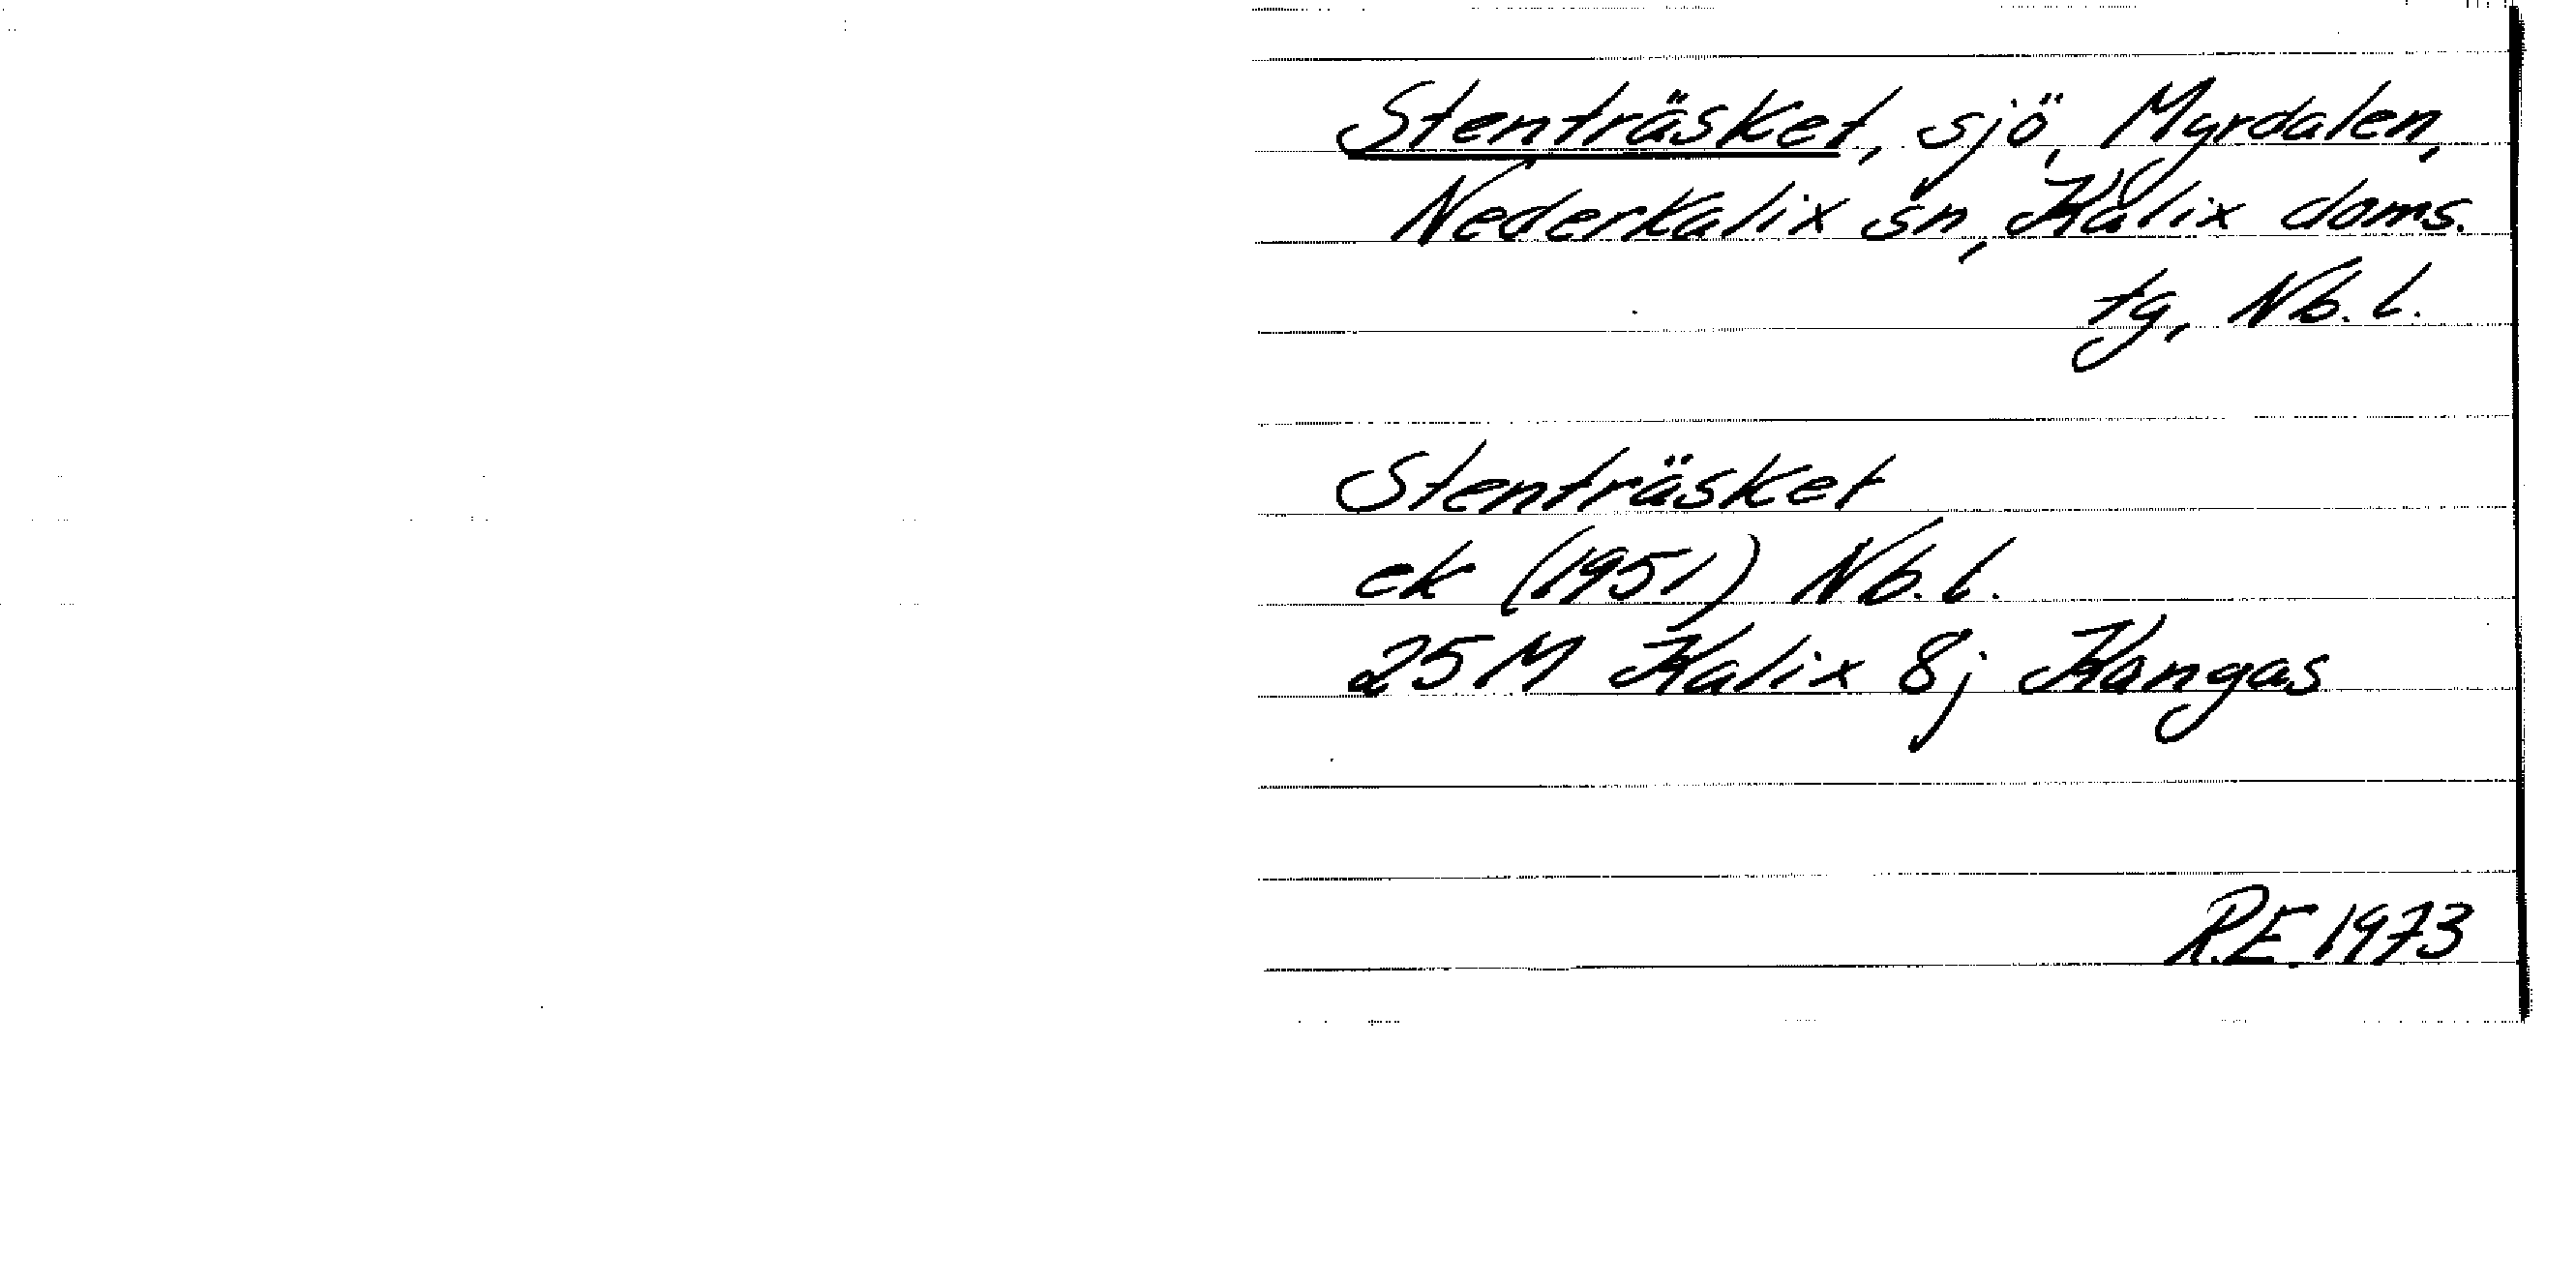 Stenträsket, sjö, Myrdalen,
Nederkalix sn, Kalix doms.
tg, Nb. l.
Stenträsket
ek (1951) Nb. l.
25 M Kalix 8j Kangas
R.E. 1973